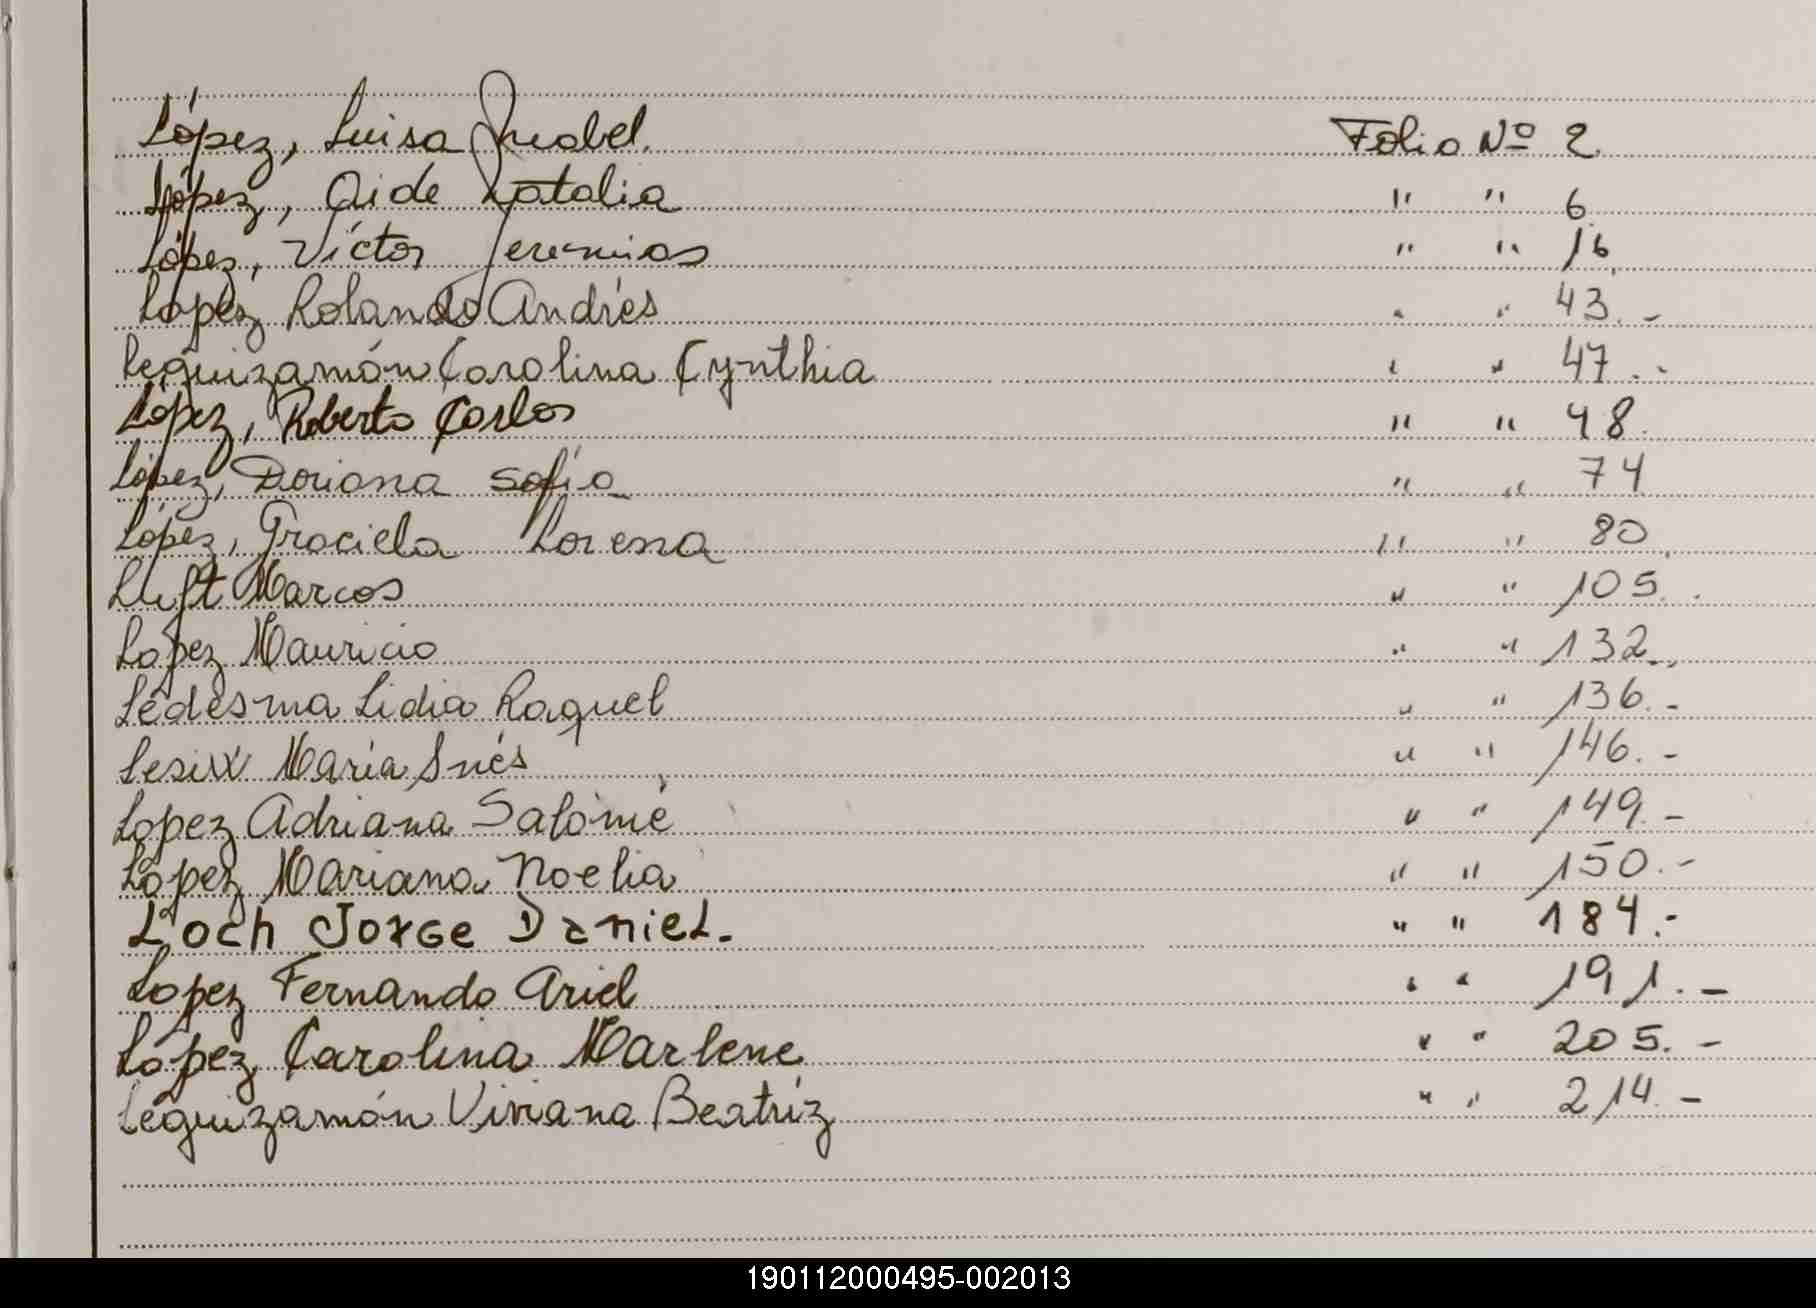 López, Luisa Isabel. Folio Nº 2
López, Aide Natalia " " 6
López, Víctor Jeremias " " 16
López Rolando Andrés " " 43.-
Leguizamón Carolina Cynthia " " 47.-
López, Roberto Carlos " " 48.
López, Doriana Sofía " " 74
López, Graciela Lorena " " 80.
Luft Marcos " " 105.-
Lopez Mauricio " " 132.-
Ledesma Lidia Raquel " " 136.-
María Inés " " 146.-
Lopez Adriana Salomé " " 149.-
Lopez Mariana Noelia " " 150.-
Loch Jorge Daniel.- " " 184.-
Lopez Fernando Ariel " " 191.-
López Carolina Marlene " " 205.-
Leguizamón Viviana Beatríz " " 214.-
190112000495-002013